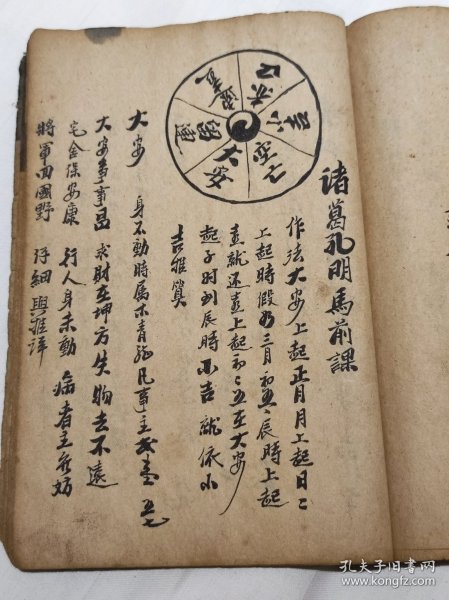 大安
留連
速喜
赤口
小吉
空亡
诸葛孔明馬前課
作法大安上起正月月上起日〻
上起時假如三月初五〻辰時上起
就还上起初〻五在大安
起子时到辰時小吉就依小
吉推算
大安 身不動時属木青龙凡事主五七
大安事事昌 求財在坤方 失物去不遠
宅舍保安康 行人身未動 病者主無妨
將軍回國野 仔細與推详
孔夫子旧书网
www.kongfz.com